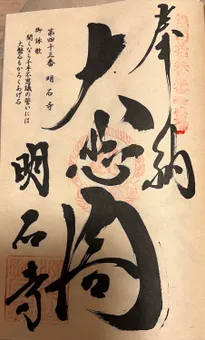 奉納
大悲閣
明石寺
第四十三番 明石寺
御詠歌
聞くならく千手不思議の誓いには
大盤石もかろくあげ石